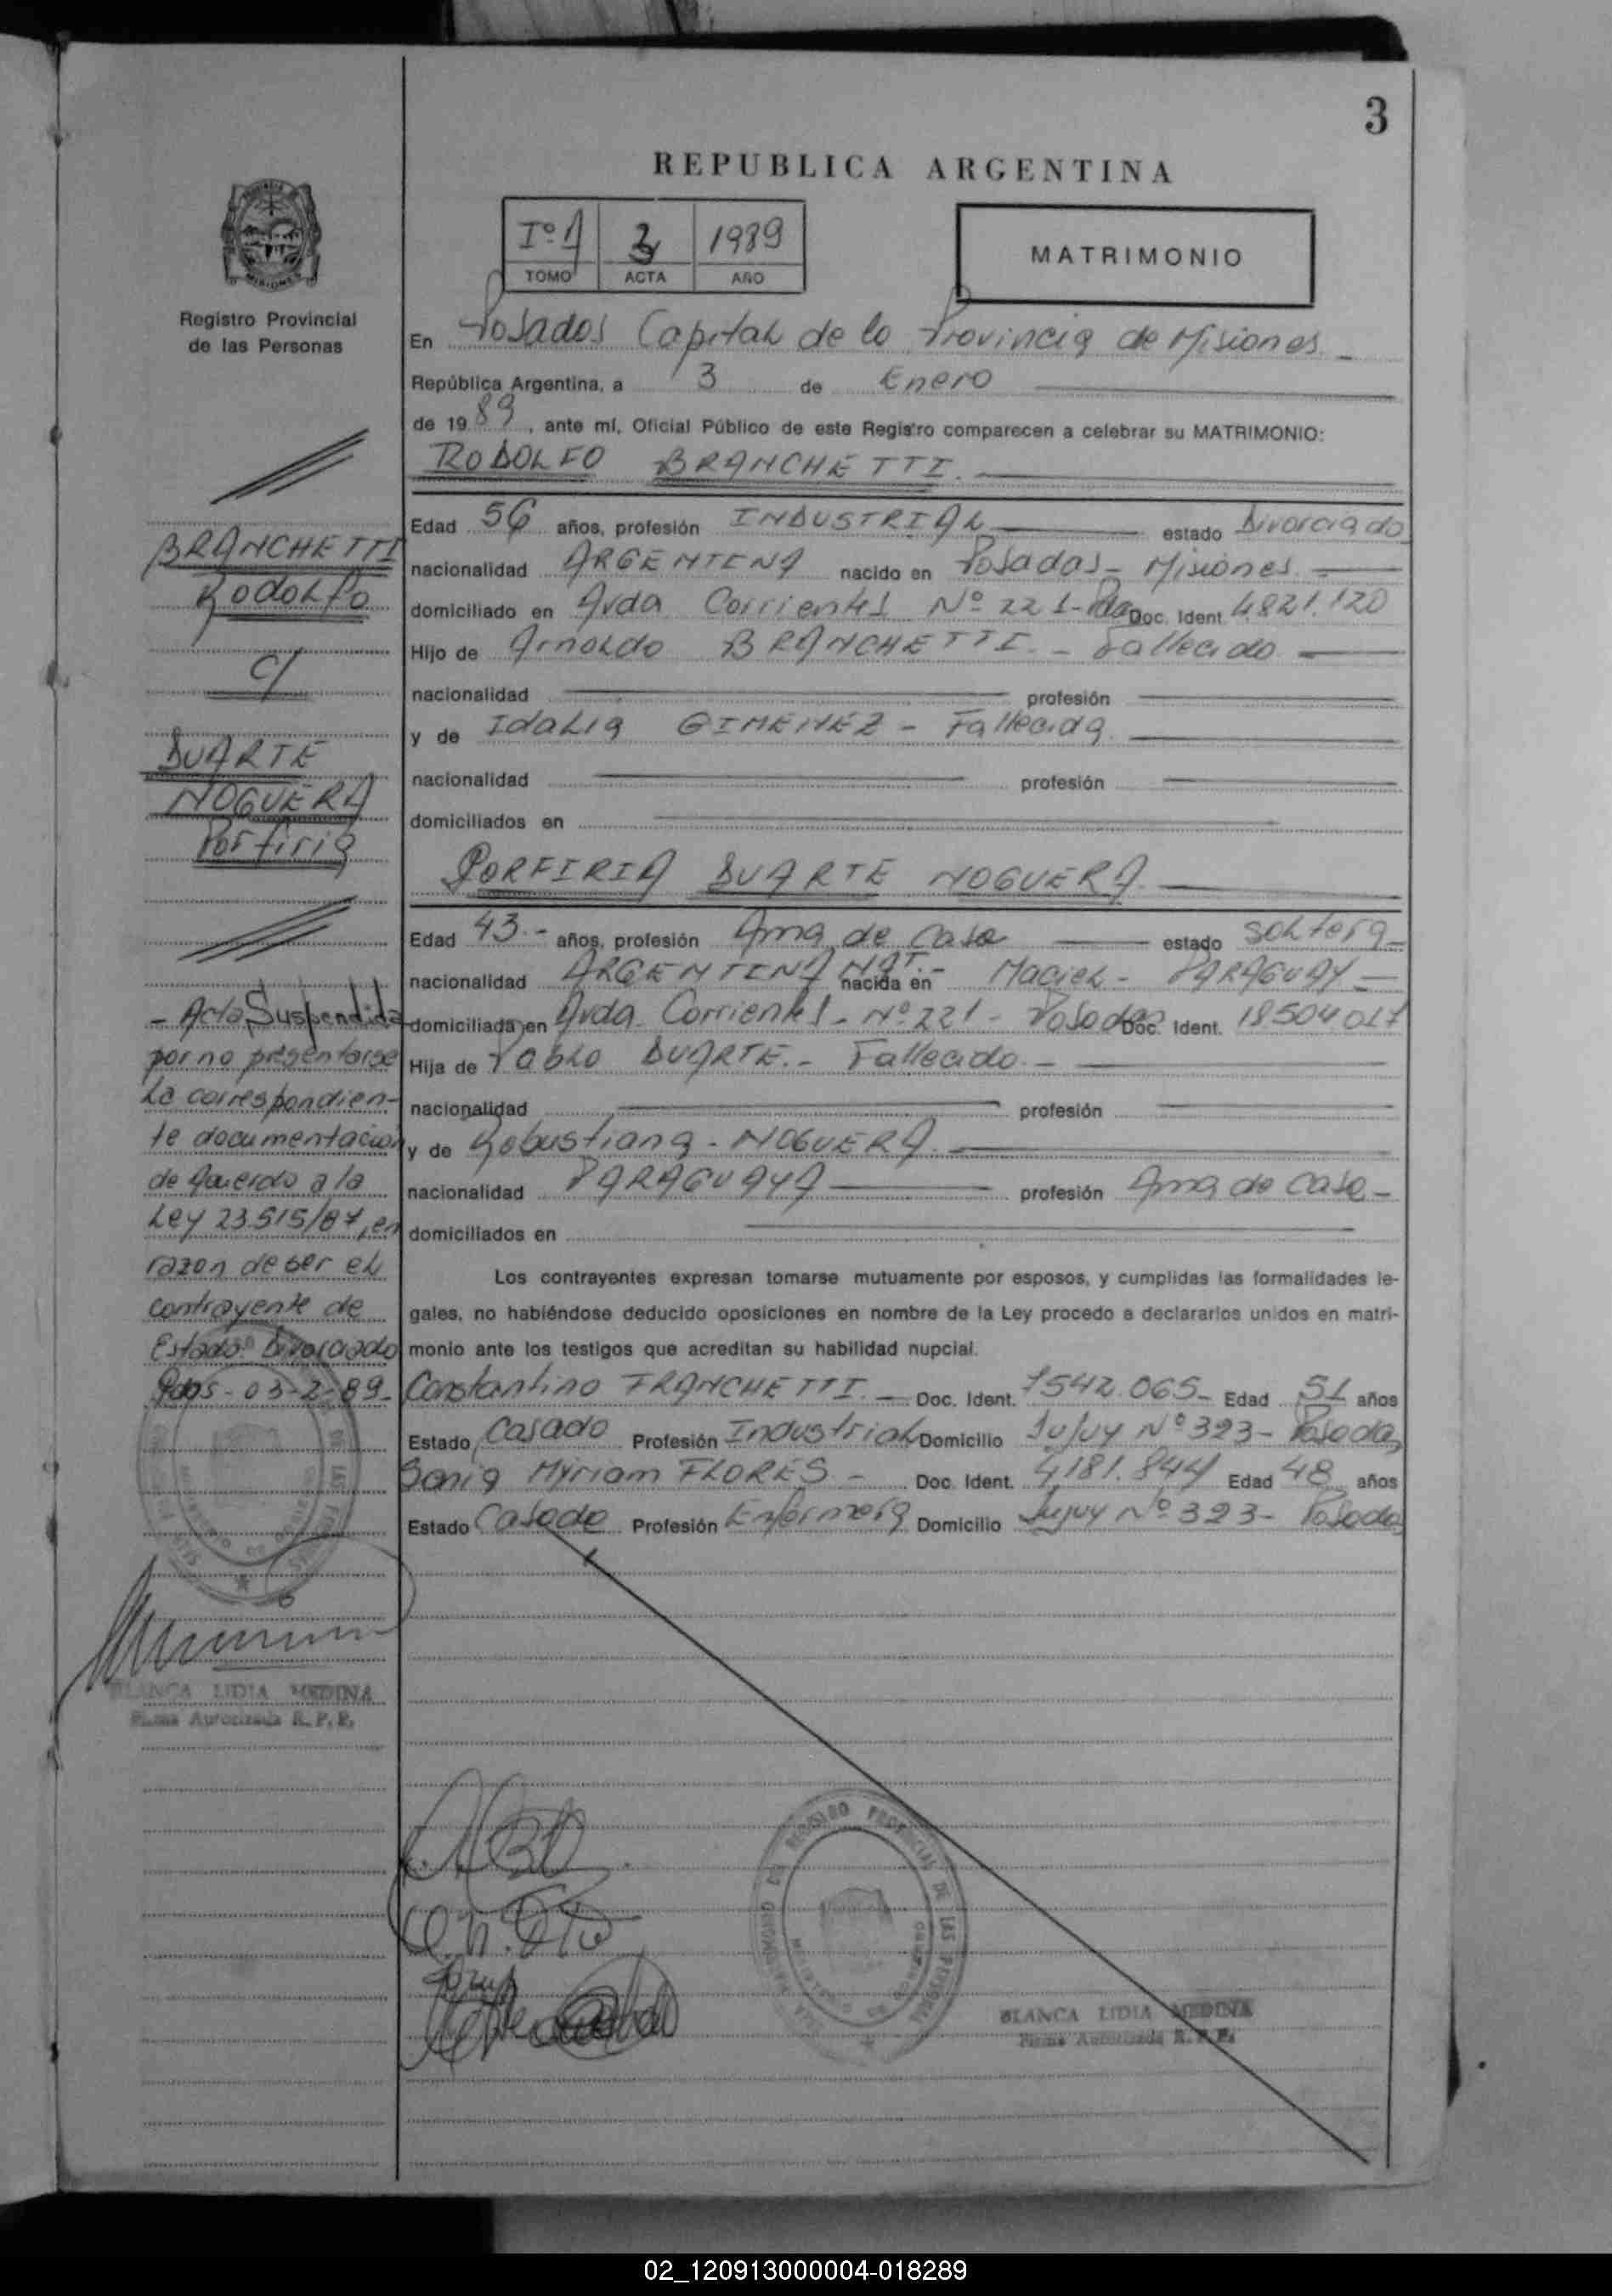 3
REPUBLICA ARGENTINA
Iº 1 3 1989
TOMO ACTA AÑO
MATRIMONIO
Registro Provincial
de las Personas
En Posadas Capital de la Provincia de Misiones
República Argentina, a 3 de Enero
de 1989, ante mí, Oficial Público de este Registro comparecen a celebrar su MATRIMONIO:
RODOLFO BRANCHETTI.
Edad 56 años, profesión INDUSTRIAL estado Divorciado
nacionalidad ARGENTINA nacido en Posadas - Misiones
domiciliado en Avda Corrientes Nº 221 - Pdas Doc. Ident. 4.821.120
Hijo de Arnoldo BRANCHETTI. - Fallecido
nacionalidad profesión
y de Idalia GIMENEZ - Fallecida
nacionalidad profesión
domiciliados en
PORFIRIA DUARTE NOGUERA
Edad 43.- años, profesión Ama de Casa estado Soltera
nacionalidad ARGENTINA NAT.- nacida en Maciel - PARAGUAY
domiciliada en Avda. Corrientes - Nº 221 - Posadas Doc. Ident. 18504.017
Hija de Pablo DUARTE.- Fallecido.-
nacionalidad profesión
y de Robustiana - NOGUERA.
nacionalidad PARAGUAYA profesión Ama de Casa -
domiciliados en
Los contrayentes expresan tomarse mutuamente por esposos, y cumplidas las formalidades le-
gales, no habiéndose deducido oposiciones en nombre de la Ley procedo a declararlos unidos en matri-
monio ante los testigos que acreditan su habilidad nupcial.
Constantino FRANCHETTI. - Doc. Ident. 7542.065 - Edad 51 años
Estado Casado Profesión Industrial Domicilio Jujuy Nº 323 - Posadas
Sonia Myriam FLORES - Doc. Ident. 4181.844 Edad 48 años
Estado Casada Profesión Enfermera Domicilio Jujuy Nº 323 - Posadas
BRANCHETTI
Rodolfo
c/
DUARTE
NOGUERA
Porfiria
- Acta Suspendida
por no presentarse
la correspondien-
te documentacion
de Acuerdo a la
Ley 23.515/87, en
razon de ser el
contrayente de
Estado: Divorciado
Pdas - 03-2-89-
BLANCA LIDIA MEDINA
Firma Autorizada R. P. P.
BLANCA LIDIA MEDINA
Firma Autorizada R. P. P.
02_120913000004-018289